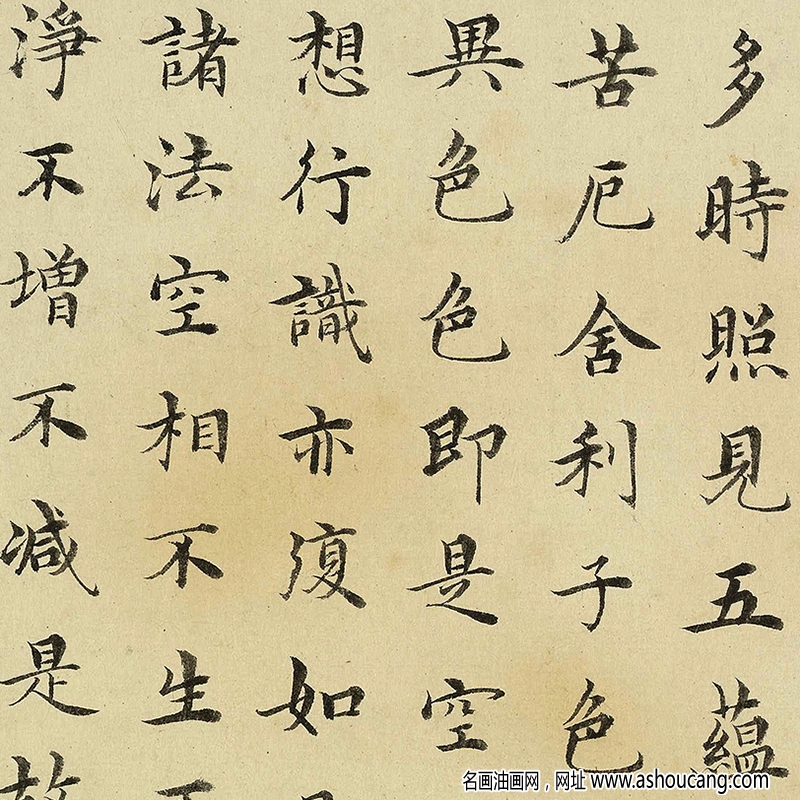 多時照見五蘊
苦厄舍利子色
異色色即是空
想行識亦復如
諸法空相不生
淨不增不減是故
名画油画网，网址 www.ashoucang.com